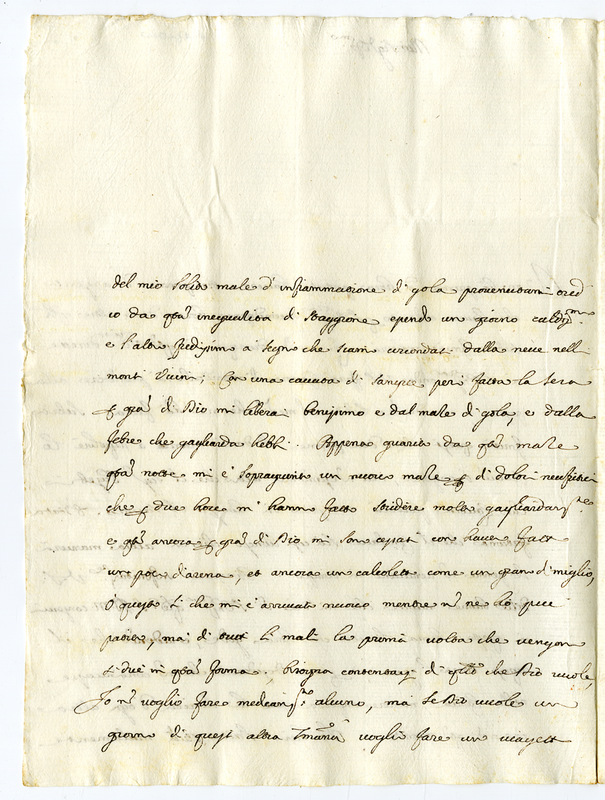 del mio solito male d'infiammatione di gola provenutami cred
io da qsta inegualità di Staggione essendo un giorno caldiss.mo
e l'altro fredissimo a segno che siam circondati dalla neve nelli
monti vicini; Con una cavata di sangue però fatta la sera
p gra di Dio mi liberai benissimo e dal male di gola, e dalla
febre che gagliarda hebbi. Appena guarita da qsto male
qsta notte mi è sopragiunto un nuovo male p di dolori nefritici
che p due hore mi hanno fatto stridere molto gagliardam.te
e qsti ancora p gra di Dio mi son cessati con haver fatto
un poca d'arena, et ancora un calcoletto come un grano di miglio,
ò questo sì che mi è arrivato nuovo mentre nō ne hò più
patito, mà di tutti li mali la prima volta che vengono
li dice in qsta forma, bisogna contentarsi di qllo che Dio vuole,
Io nō voglio fare medicam.to alcuno, mà se Dio vuole un
giorno di quest'altra 7mana voglio fare un viagetto